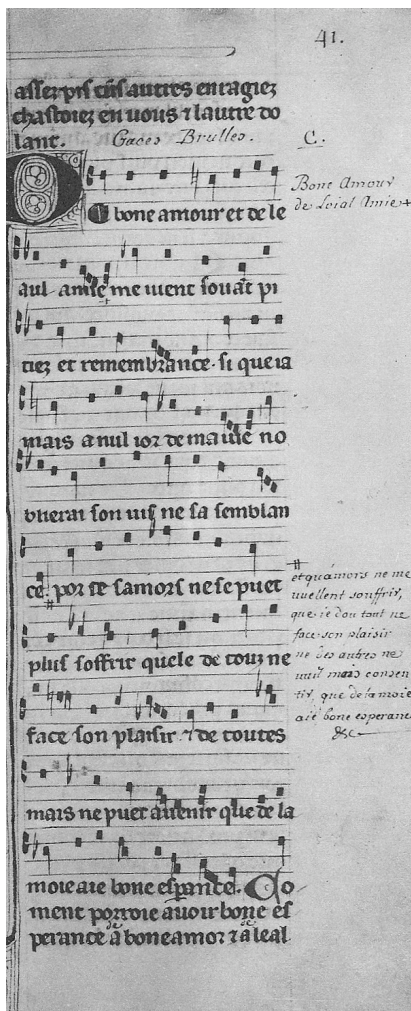 41.
asſez pis cūs autres enragiez
chaſtoiez en vous ⁊ lautre do
lant.
Gaces Brulles.
C.
bone amour et de le
aul amie me uient ſouāt pi
tiez et remembrance. ſi que ia
mais a nul ior de ma uie no
blierai ſon uis ne ſa ſemblan
ce. por ce ſamors ne ſe puet
plus ſoffrir quele de touz ne
face ſon plaiſir ⁊ de toutes
mais ne puet auenir que de la
moie aie bone eſpance. Co
ment porroie auoir bone eſ
perance a bone amor ⁊ a leal
Bone Amour
de Loial Amie +
et quámors ne me
vuellent souffrir,
que je dou tout ne
face son plaisir
ne des autres ne
vuil mais consen
tir, que de la moie
aie bone esperance
&c